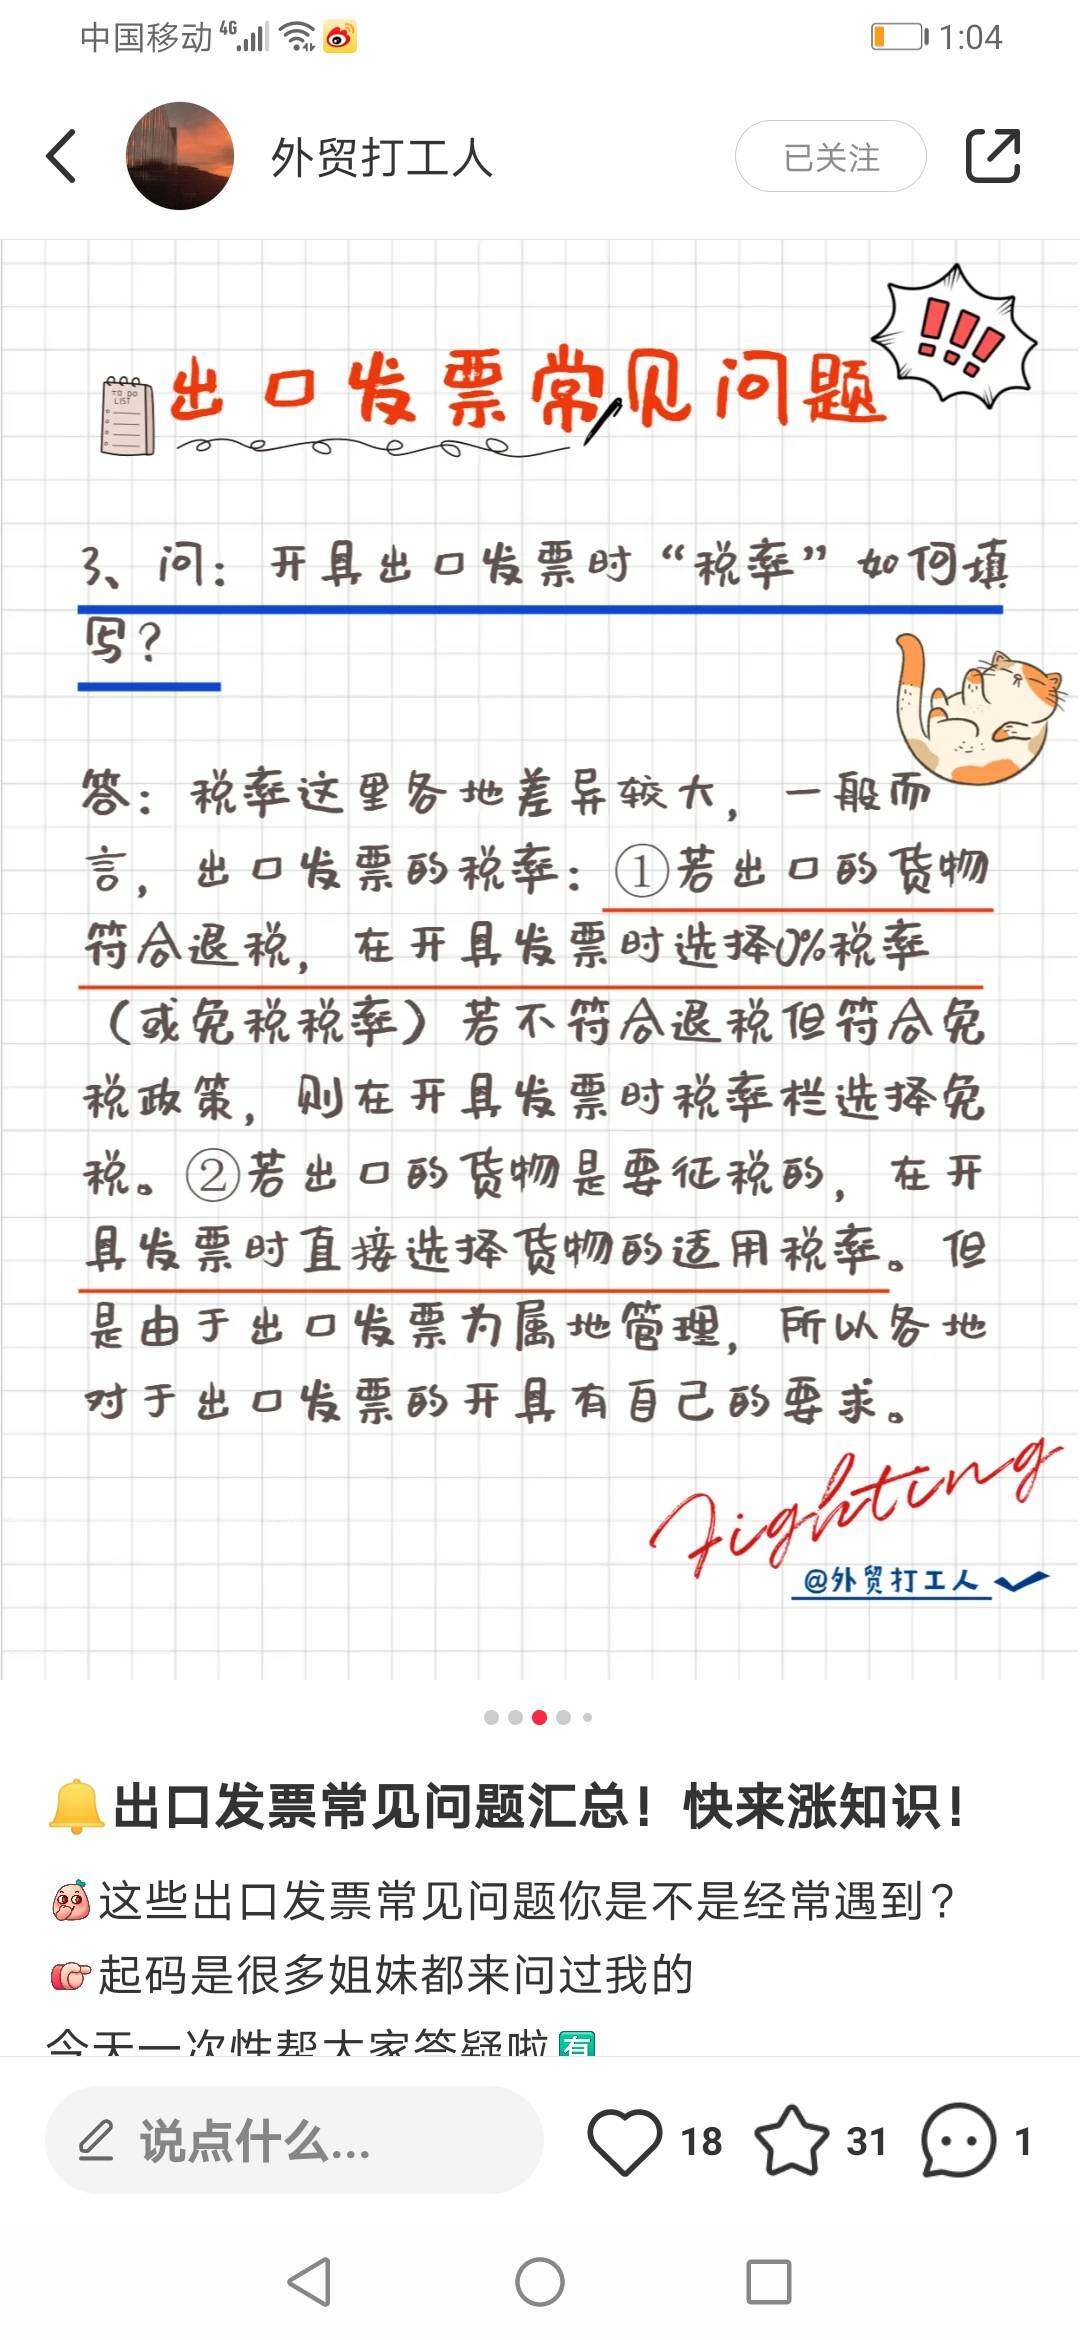 中国移动 4G 1:04
外贸打工人 已关注
!!!
TO DO
LIST
出口发票常见问题
3、问：开具出口发票时“税率”如何填
写？
答：税率这里各地差异较大，一般而
言，出口发票的税率：①若出口的货物
符合退税，在开具发票时选择0%税率
（或免税税率）若不符合退税但符合免
税政策，则在开具发票时税率栏选择免
税。②若出口的货物是要征税的，在开
具发票时直接选择货物的适用税率。但
是由于出口发票为属地管理，所以各地
对于出口发票的开具有自己的要求。
Fighting
@外贸打工人
🔔出口发票常见问题汇总！快来涨知识！
这些出口发票常见问题你是不是经常遇到？
起码是很多姐妹都来问过我的
今天一次性帮大家答疑啦🈶
说点什么... 18 31 1